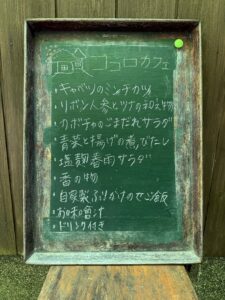 ココロカフェ
・キャベツのミンチカツ
・リボン人参とツナの和え物
・カボチャのごまだれサラダ
・青菜と揚げの煮びたし
・塩麹春雨サラダ
・香の物
・自家製ふりかけのせご飯
・お味噌汁
・ドリンク付き